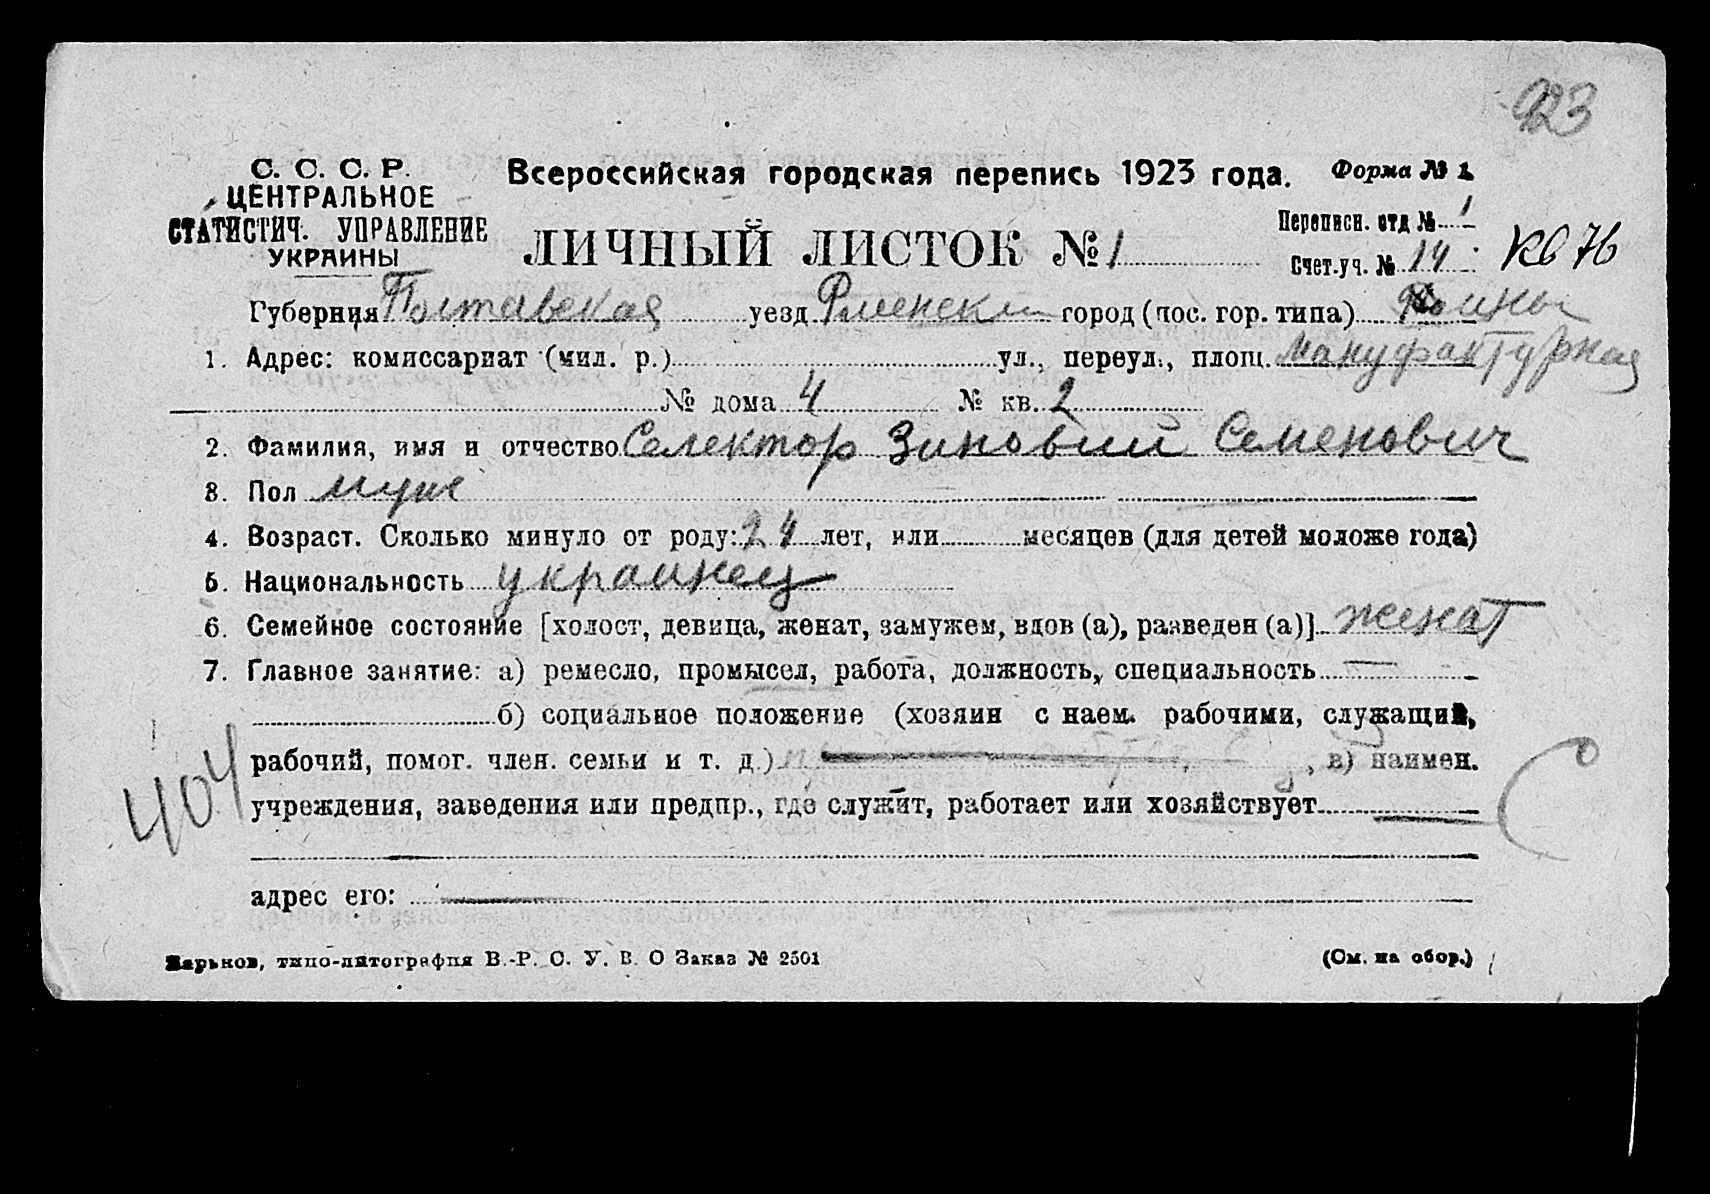 923
С. С. С. Р.
ЦЕНТРАЛЬНОЕ
СТАТИСТИЧ. УПРАВЛЕНИЕ
УКРАИНЫ
Всероссийская городская перепись 1923 года.
Форма № 1
ЛИЧНЫЙ ЛИСТОК № 1
Переписн. отд № 1
Счет.уч. № 14
Кв 76
Губерния Полтавская уезд Рменски город (пос. гор. типа) Ромны
1. Адрес: комиссариат (мил. р.) ул., переул., площ. Мануфактурная
№ дома 4 № кв. 2
2. Фамилия, имя и отчество Селектор Зиновий Семенович
3. Пол муж
4. Возраст. Сколько минуло от роду: 24 лет, или месяцев (для детей моложе года)
5. Национальность украинец
6. Семейное состояние [холост, девица, женат, замужем, вдов (а), разведен (а)] женат
7. Главное занятие: а) ремесло, промысел, работа, должность, специальность —
б) социальное положение (хозяин с наем. рабочими, служащий,
рабочий, помог. член. семьи и т. д.) , в) наимен.
учреждения, заведения или предпр., где служит, работает или хозяйствует —
404
С
адрес его: —
Харьков, типо-литография В.-Р. С. У. В. О Заказ № 2501
(См. на обор.)